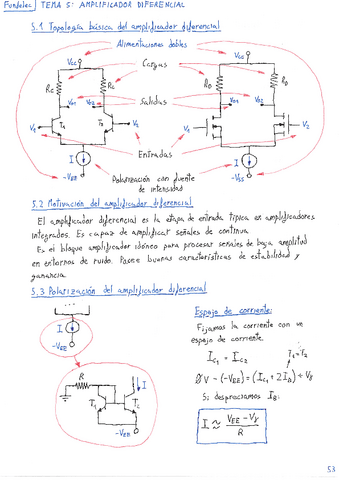 Fundelec TEMA 5: AMPLIFICADOR DIFERENCIAL
5.1 Topología básica del amplificador diferencial
Alimentaciones dobles
Vcc Vcc
Cargas
Rc Rc RD RD
Vo1 Vo2 Salidas Vo1 Vo2
V1 T1 T2 V2 V1 V2
Entradas
I I
-VEE Polarización con fuente -VSS
de intensidad
5.2 Motivación del amplificador diferencial
El amplificador diferencial es la etapa de entrada típica en amplificadores
integrados. Es capaz de amplificar señales de continua.
Es el bloque amplificador idóneo para procesar señales de baja amplitud
en entornos de ruido. Posee buenas características de estabilidad y
ganancia.
5.3 Polarización del amplificador diferencial
I
-VEE
Espejo de corriente:
Fijamos la corriente con un
espejo de corriente.
IC1 = IC2 T1=T2
0V - (-VEE) = (IC1 + 2IB) + Vγ
Si despreciamos IB:
I ≈ VEE - Vγ
R
R
I
T1 T2
-VEE
53